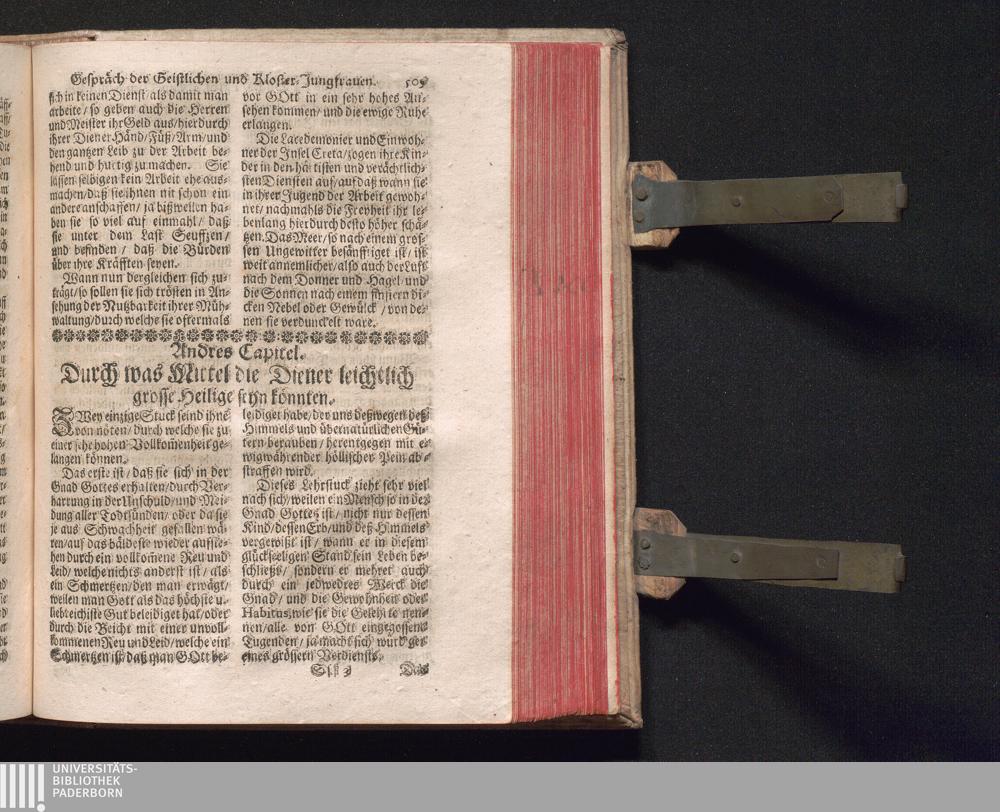 Gespräch der Geistlichen und Kloster-Jungfrauen. 509
sich in keinen Dienst / als damit man
arbeite / so geben auch die Herren
und Meister ihr Geld aus / hierdurch
ihrer Diener Händ / Füß / Arm / und
den gantzen Leib zu der Arbeit be-
hend und hurtig zu machen. Sie
lassen selbigen kein Arbeit ehe aus-
machen / daß sie ihnen nit schon ein
andere anschaffen / ja bißweilen ha-
ben sie so viel auf einmahl / daß
sie unter dem Last Seuffzen /
und befinden / daß die Bürden
über ihre Kräfften seyen.
Wann nun dergleichen sich zu-
trägt / so sollen sie sich trösten in An-
sehung der Nutzbarkeit ihrer Müh-
waltung / durch welche sie oftermals
vor GOtt in ein sehr hohes An-
sehen kommen / und die ewige Ruhe
erlangen.
Die Lacedemonier und Einwoh-
ner der Insel Creta / zogen ihre Kin-
der in den härtisten und verächtlich-
sten Diensten auf / auf daß wann sie
in ihrer Jugend der Arbeit gewoh-
net / nachmahls die Freyheit ihr le-
benlang hierdurch desto höher schä-
tzen. Das Meer / so nach einem gros-
sen Ungewitter besänfftiget ist / ist
weit annemlicher / also auch der Luft
nach dem Donner und Hagel / und
die Sonnen nach einem finstern di-
cken Nebel oder Gewülck / von de-
nen sie verdunckelt ware.
Andres Capitel.
Durch was Mittel die Diener leichtlich
grosse Heilige seyn könnten.
ZWey einzige Stuck seind ihnē
von nöten / durch welche sie zu
einer sehr hohen Vollkom̄enheit ge-
langen können.
Das erste ist / daß sie sich in der
Gnad Gottes erhalten / durch Ver-
harrung in der Unschuld / und Mei-
dung aller Todtsünden / oder da sie
je aus Schwachheit gefallen wä-
ren / auf das bäldeste wieder aufste-
hen durch ein vollkom̄ene Reu und
Leid / welche nichts anderst ist / als
ein Schmertzen / den man erwägt /
weilen man Gott als das höchste u.
liebreichiste Gut beleidiget hat / oder
durch die Beicht mit einer unvoll-
kommenen Reu und Leid / welche ein
Schmertzen ist / daß man GOtt be-
leidiget habe / der uns deßwegen deß
Himmels und übernatürlichen Gü-
tern berauben / herentgegen mit e-
wigwährender höllischer Pein ab-
straffen wird.
Dieses Lehrstuck zieht sehr viel
nach sich / weilen ein Mensch so in der
Gnad Gottes ist / nicht nur dessen
Kind / dessen Erb / und deß Himmels
vergewißt ist / wann er in diesem
glückseeligen Stand sein Leben be-
schließt / sondern er mehret auch
durch ein jedwedres Werck die
Gnad / und die Gewohnheit oder
Habitus, wie sie die Gelehrte nen-
nen / alle von GOtt eingegossene
Tugenden / ja macht sich würdiger
eines grössern Verdiensts.
Sss 3 Das
UNIVERSITÄTS-
BIBLIOTHEK
PADERBORN